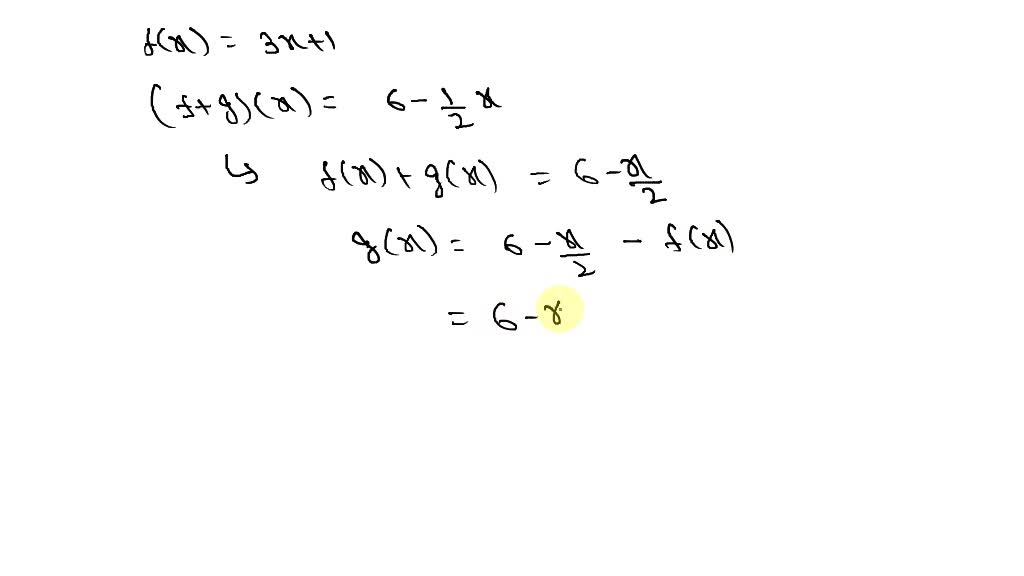 f(x) = 3x+1
(f+g)(x) = 6 - 1/2 x
↳ f(x) + g(x) = 6 - x/2
g(x) = 6 - x/2 - f(x)
= 6 - x